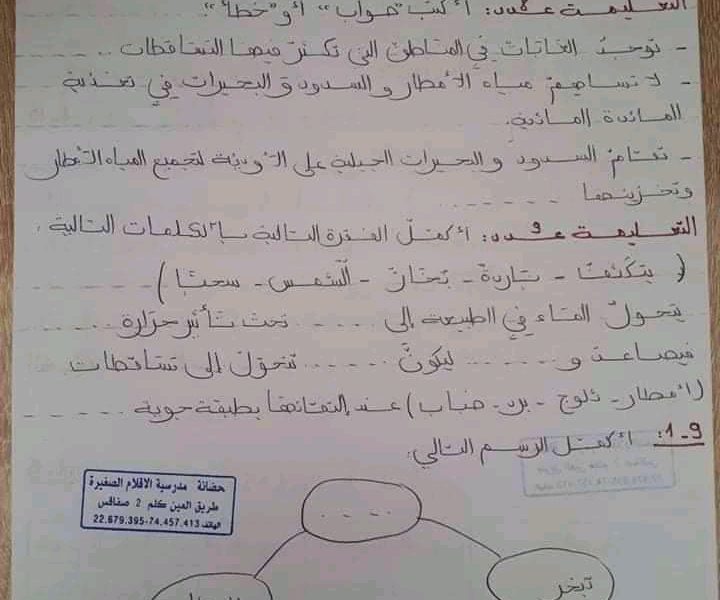 التعليمة عدد: أكتب "صواب" أو "خطأ".
- توجد الغابات في المناطق التي تكثر فيها التساقطات
- لا تساهم مياه الأمطار و السدود و البحيرات في تغذية
المائدة المائية.
- تقام السدود و البحيرات الجبلية على الأودية لتجميع المياه الأمطار
وتخزينها ......
التعليمة عدد 9: أكمل الفقرة التالية بالكلمات التالية:
( يتكثف - باردة - بخار - الشمس - سحبا )
يتحول الماء في الطبيعة إلى ...... تحت تأثير حرارة ......
فيصاعد و ...... ليكون ...... تتحول إلى تساقطات
(أمطار - ثلوج - برد - ضباب) عند التقائها بطبقة جوية ......
9-1: أكمل الرسم التالي:
حضانة مدرسية الاقلام الصغيرة
طريق العين كلم 2 صفاقس
الهاتف 22.679.395-74.457.413
....
تبخر